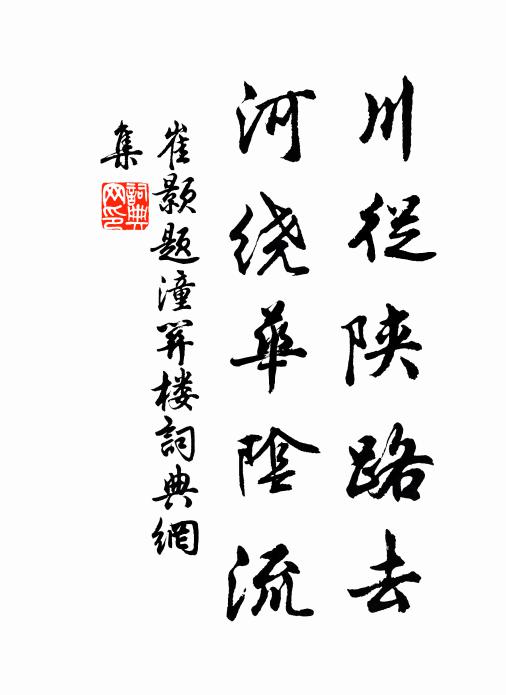 川從陕路去
河绕華陰流
崔颢题潼関楼詞典網
集
詞典网印